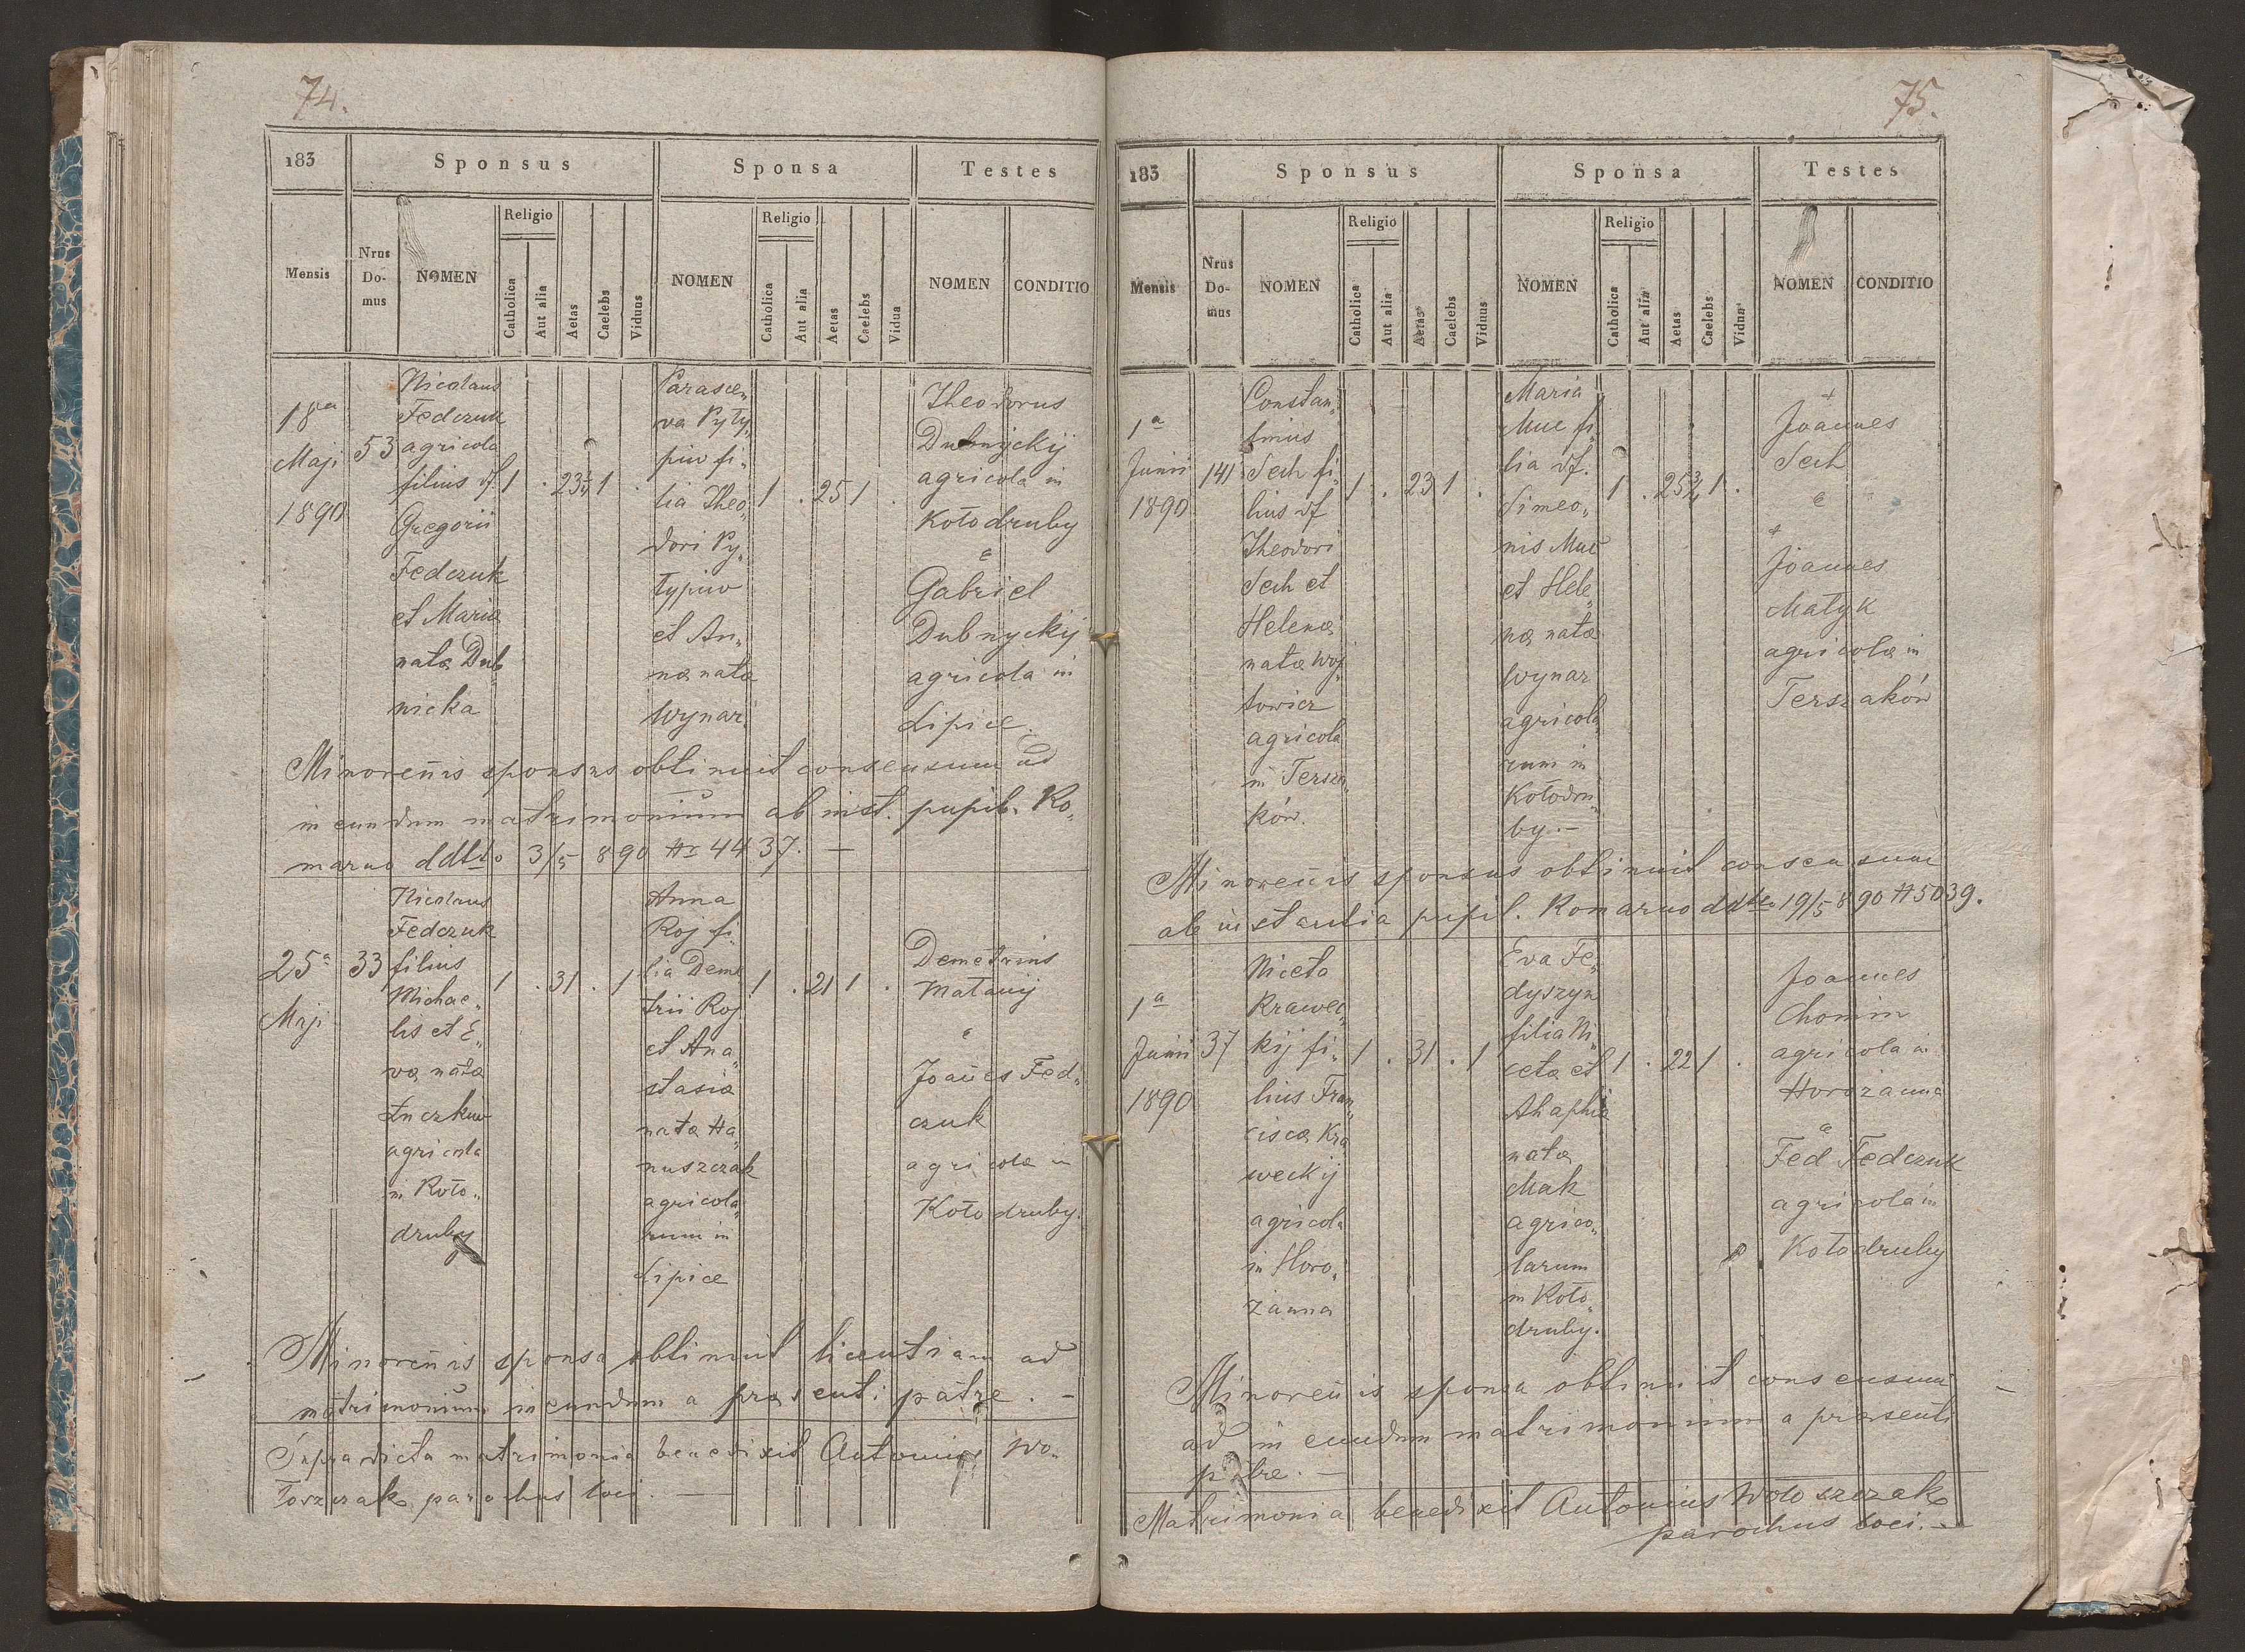 74.
183
Sponsus
Sponsa
Testes
Mensis
Nrus Domus
NOMEN
Religio
Catholica
Aut alia
Aetas
Caelebs
Viduus
NOMEN
Religio
Catholica
Aut alia
Aetas
Caelebs
Vidua
NOMEN
CONDITIO
18a
Maji
1890
53
Nicolaus
Fedczuk
agricola
filius
Gregorii
Fedczuk
et Maria
nata Dub
nicka
1 . 23 1 .
Parasce„
va Pyty„
piw fi„
lia Theo„
dori Py„
typiw
et An„
na nata
Wynar
1 . 25 1 .
Theodorus
Dubnyckij
agricola in
Kołodruby
&
Gabriel
Dubnyckij
agricola in
Lipice
Minorenis sponsus obtinuit consensum ad
ineundum matrimonium ab inst. pupil. Ko„
marno ddtto 3/5 890 No 4437. —
25a
Maji
33
Nicolaus
Fedczuk
filius
Michae„
lis et E„
va nata
Łuczkiw
agricola
in Koło„
druby
1 . 31 . 1
Anna
Roj fi„
lia Deme
trii Roj
et Ana„
stasia
nata Ha„
nuszczak
agricola„
rum in
Lipice
1 . 21 1 .
Demetrius
&
Joañes Fed„
czuk
agricola in
Kołodruby.
Minorenis sponsa obtinuit licentiam ad
matrimonium ineundum a præsenti patre. —
Supradicta matrimonia benedixit Antonius Wo„
łoszczak parochus loci. —
75.
183
Sponsus
Sponsa
Testes
Mensis
Nrus Domus
NOMEN
Religio
Catholica
Aut alia
Aetas
Caelebs
Viduus
NOMEN
Religio
Catholica
Aut alia
Aetas
Caelebs
Vidua
NOMEN
CONDITIO
1a
Junii
1890
141
Constan„
tinus
Sech fi„
lius
Theodori
Sech et
Helena
nata Woj
towicz
agricola
in Tersza„
ków.
1 . 23 1 .
Maria
Muc fi„
lia
Simeo„
nis Muc
et Hele„
na nata
Wynar
agricola„
rum in
Kołodru„
by. —
1 . 25¾ 1 .
+
Joannes
Sech
&
+
Joannes
Matyk
agricola in
Terszaków
Minorenis sponsus obtinuit consensum
ab instantia pupil. Komarno ddtto 19/5 890 No 5039.
1a
Junii
1890
37
Niceta
Krawec„
kij fi„
lius Fran„
cisca Kra
weckij
agricola
in Horo„
żanna
1 . 31 . 1
Eva Fe„
dyszyn
filia Ni„
ceta et
Ahaphia
nata
Mak
agrico„
larum
in Koło„
druby.
1 . 22 1 .
Joannes
Chomin
agricola in
Horożanna
&
Fed Fedczuk
agricola in
Kołodruby
Minorenis sponsa obtinuit consensum
ad ineundum matrimonium a præsenti
patre. —
Matrimonia benedixit Antonius Wołoszczak
parochus loci. —